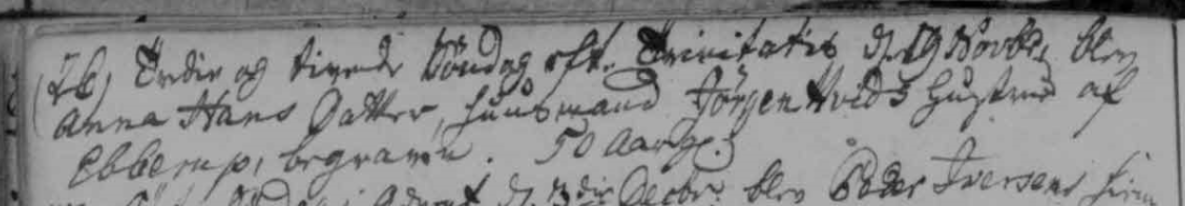 26, Tredie og tivende Söndag eft. Trinitatis d. 19 Novbr, blev
Anna Hans Datter, Huusmand Jörgen Hvids Hustrue af
Ebberup, begraven. 50 Aar gl.
Advent d. 3die Decbr. blev Peder Iversens